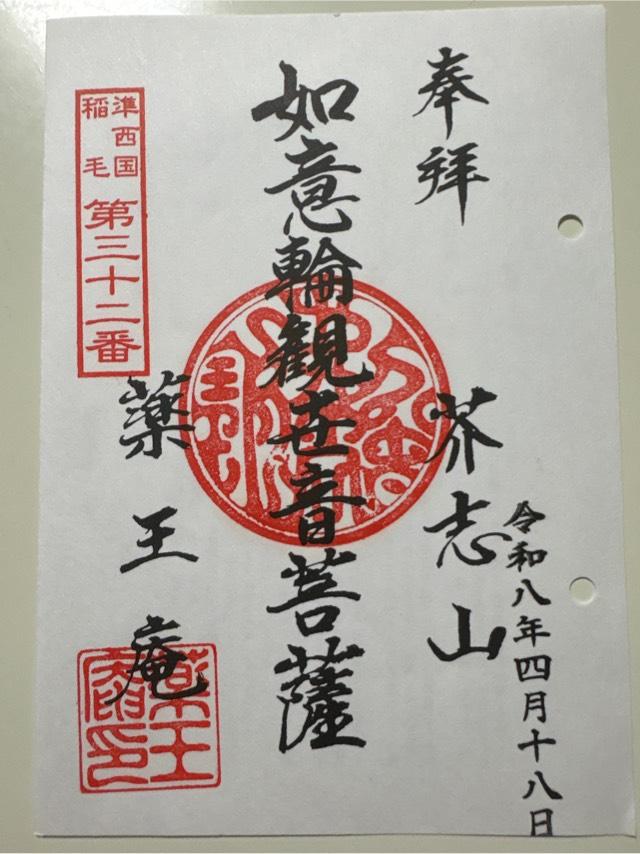 奉拝
芥志山
令和八年四月十八日
如意輪観世音菩薩
準西国
稲毛
第三十二番
薬王庵
薬王
庵印